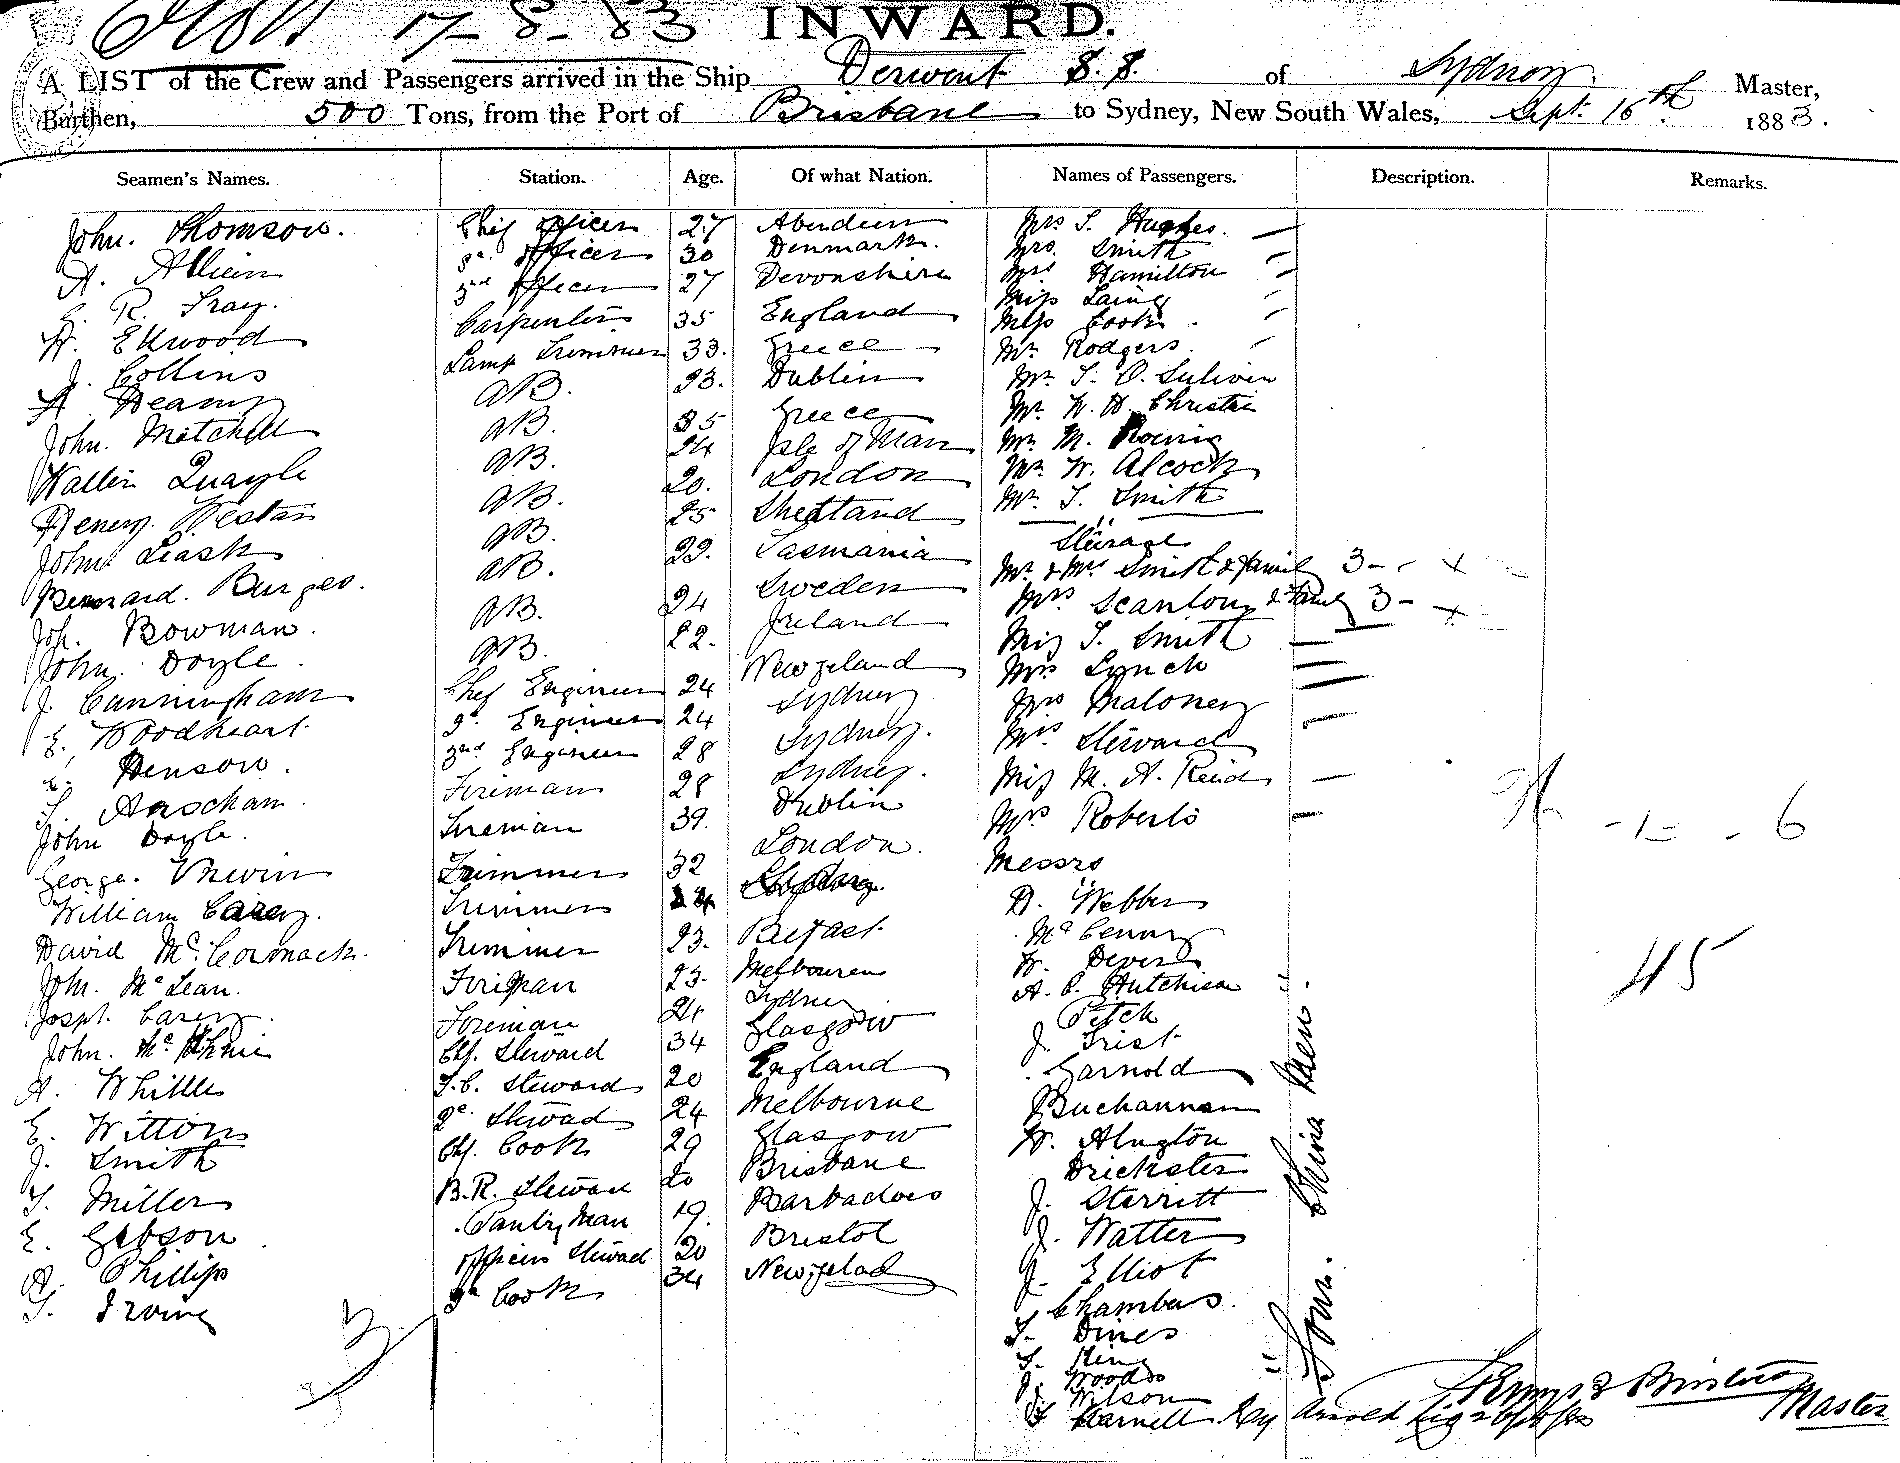 17-8-83 INWARD.
A LIST of the Crew and Passengers arrived in the Ship Derwent S.S. of Sydney Master,
Burthen, 500 Tons, from the Port of Brisbane to Sydney, New South Wales, Sept. 16th 1883.
Seamen's Names. Station. Age. Of what Nation. Names of Passengers. Description. Remarks.
John. Thomson. Chief Officer 27 Aberdeen Mrs S. Hughes.
A. Allein 2nd Officer 30 Denmark. Mrs. Smith "
R. Gray. 3rd Officer 27 Devonshire Mrs Hamilton "
H. Ellwood Carpenter 35 England Miss Laing "
J. Collins Lamp Trimmer 33. Greece Miss Cook "
Deamy AB. 23. Dublin Mr. Rodgers. "
John. Mitchell AB. 35 Greece Mr. T. O. Sulivin
Walter Quayle AB. 24 Isle of Man Mr. W. H. Christie
Henery. Westan AB. 20. London Mr. M. Roenig
John Leask AB. 25 Shetland Mr. W. Alcock
Bernard. Burges. AB. 22. Tasmania Mr. T. Smith
Joh. Bowman. AB. 24 Sweden Sterage
John. Doyle. AB. 22. Ireland Mr. & Mrs Smith & family 3 - x
J. Cunningham Chef Engineer 24 New Zeland Mrs Scanlon & Family 3 - x
E. Woodheart 2d. Engineer 24 Sydney Miss T. Smith
Henson. 3rd Engineer 28 Sydney. Mrs Lynch
Fireman 28 Sydney. Mrs Maloney
John Doyle. Fireman 39. Dublin Mrs Steward
George. Trimmer 32 London. Miss M. A. Reid
William Carey. Trimmer 24 Sydney. Mrs Roberts - 1 - - 6
David McCormack. Trimmer 23. Belfast. Messrs
John. McLean. Fireman 23. Melbouren D. Webber
Josph. Carey. Fireman 24 Sydney McCenny 45
John. Chf. Steward 34 Glasgow W. Devers
A. Whittle F.C. Steward 20 England A. C. Hutchison
E. Witton 2d. Steward 24 Melbourne Petch
J. Smith Chf. Cook 29 Glasgow J. Grist
T. Miller B.R. Steward 20 Brisbane Garnold
E. Gibson Pantry Man 19. Barbadoes Buchannan
A. Phillips Officers Steward 20 Bristol W. Alington
T. Irving 2d Cook 34 New Zelad
J. Sterritt
J. Watter
J. Elliot
Chambers.
T. Dines
T. King
J. Woods
Wilson
Four. China Men.
Master